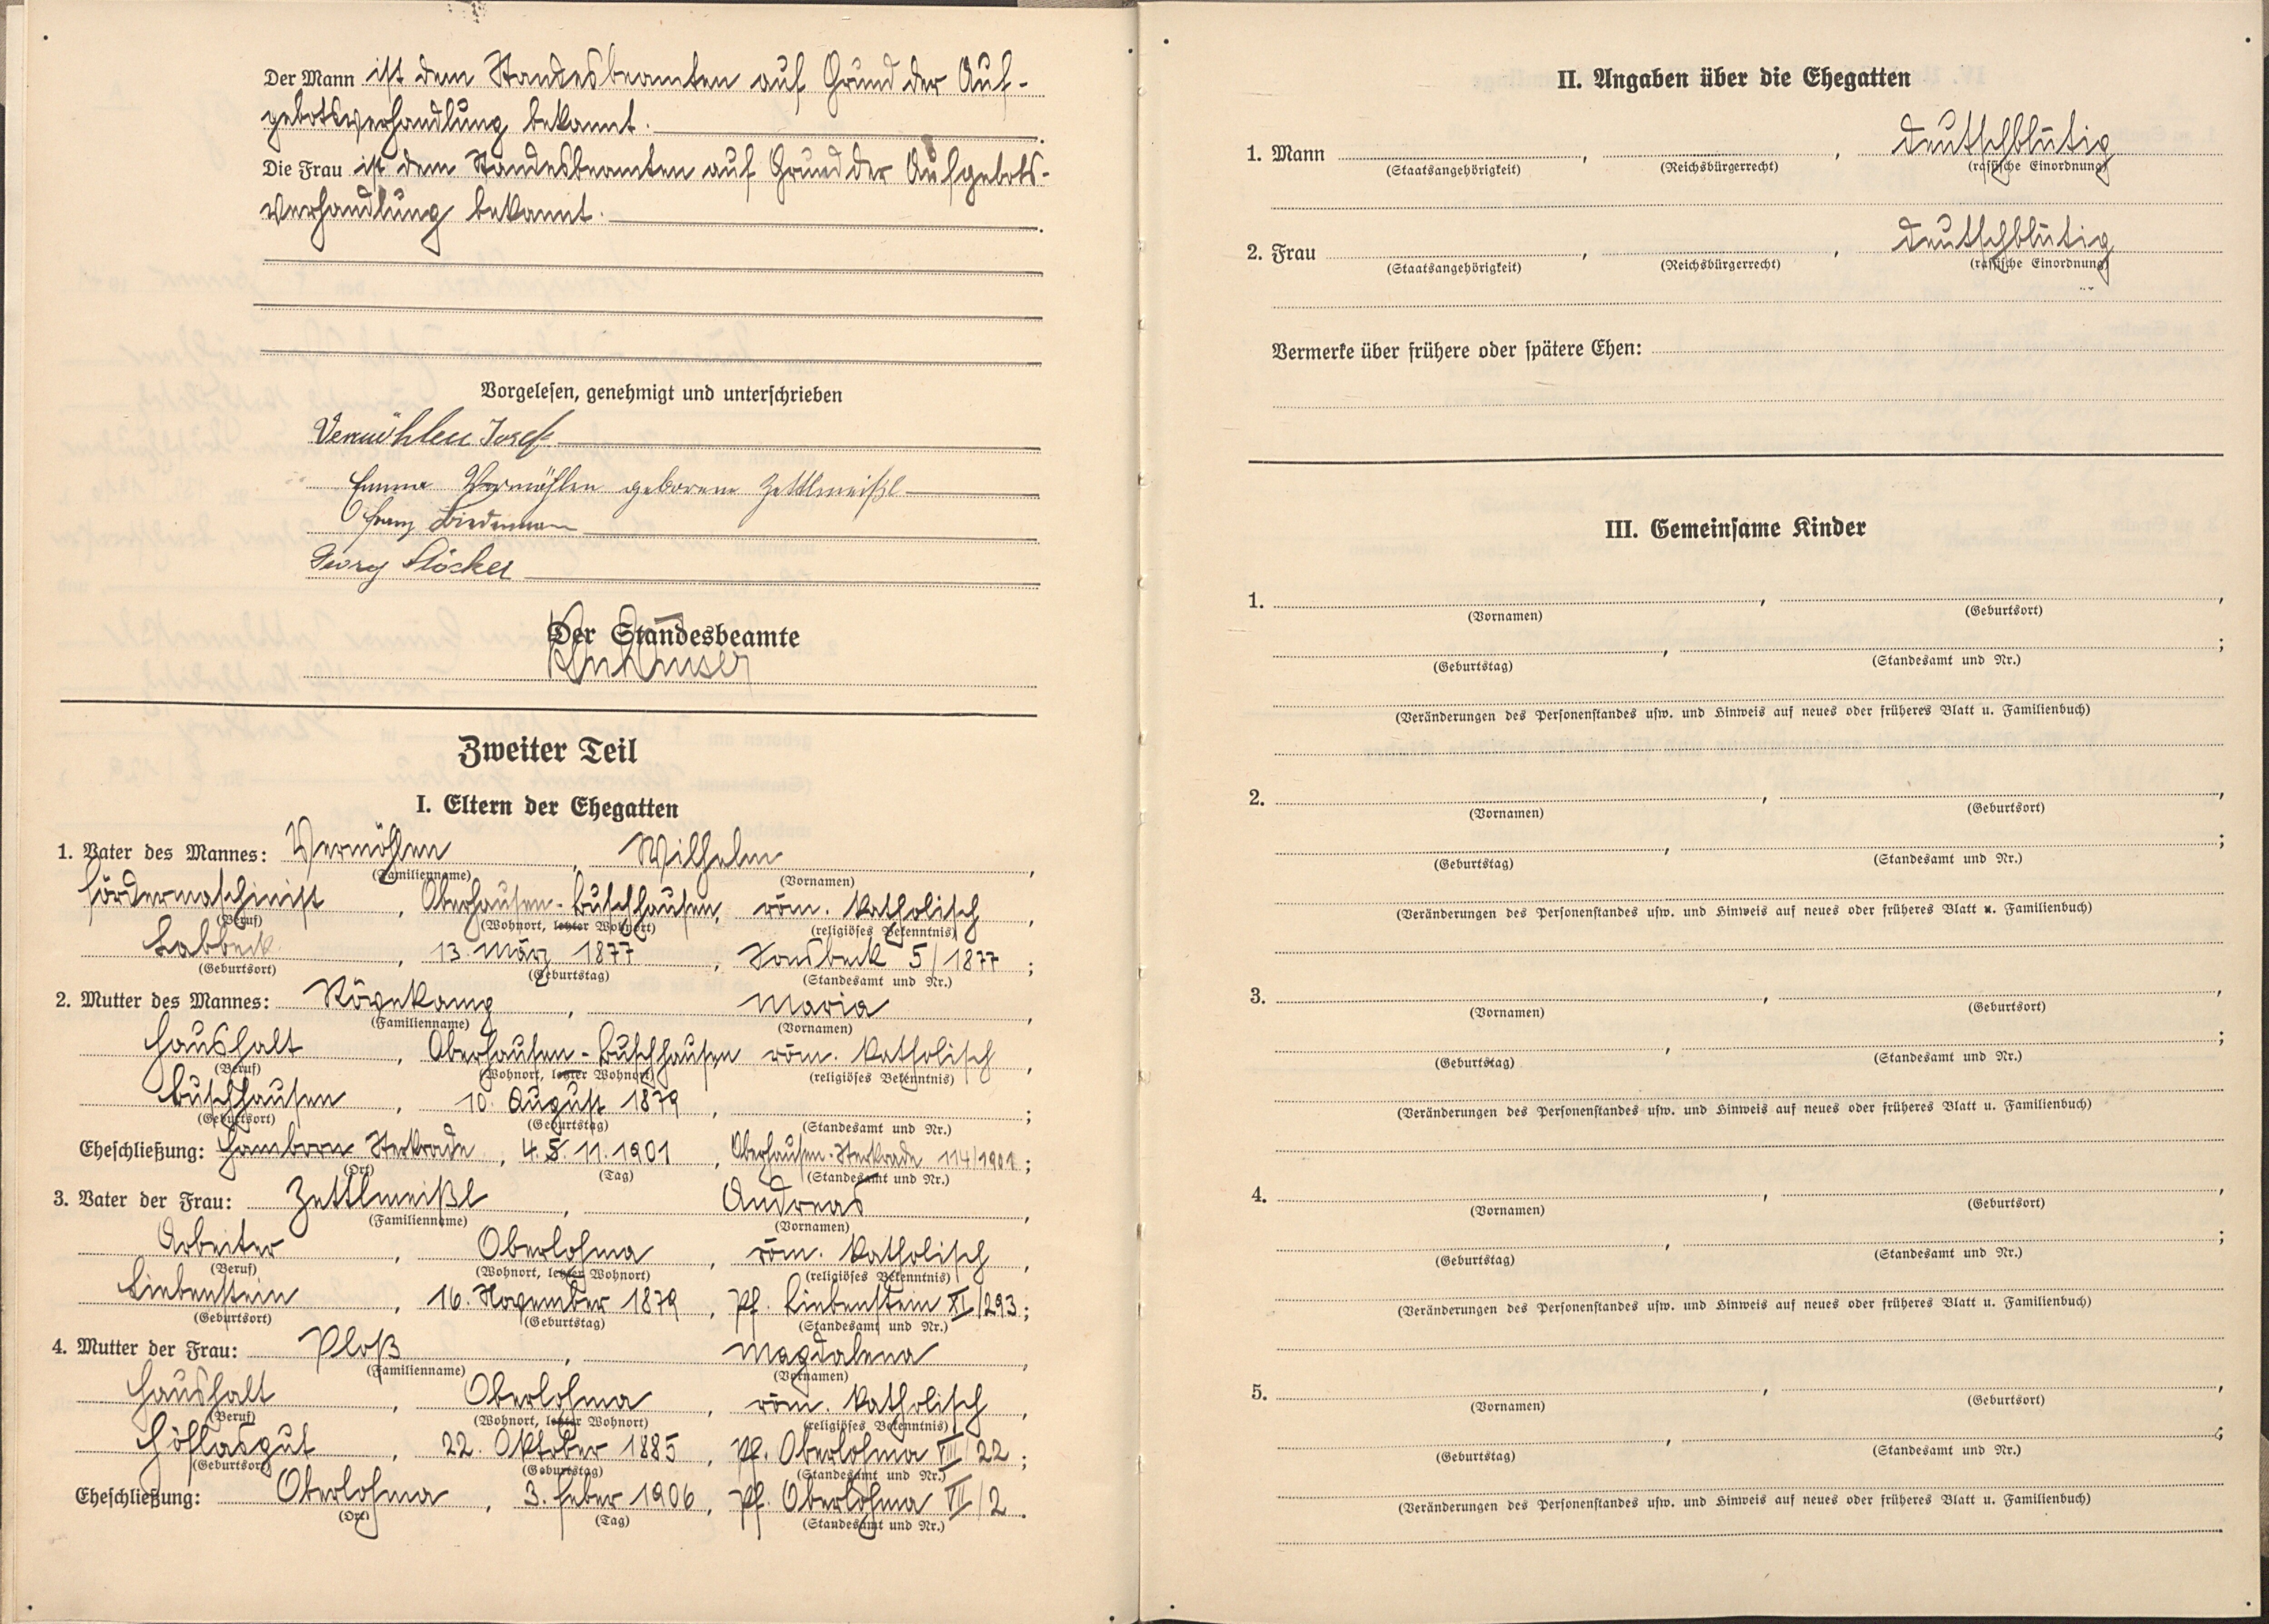 Der Mann ist dem Standesbeamten auf Grund der Auf-
gebotsverhandlung bekannt.
Die Frau ist dem Standesbeamten auf Grund der Aufgebots-
verhandlung bekannt.
Vorgelesen, genehmigt und unterschrieben
Vermöhlen Josef
Emma Vermöhlen geborene Zettlmeißl
Franz Wiedermann
Georg Stöcker
Der Standesbeamte
Zweiter Teil
I. Eltern der Ehegatten
1. Vater des Mannes: Vermöhlen, Wilhelm,
(Familienname) (Vornamen)
Fördermaschinist, Oberhausen-Buschhausen, röm. katholisch,
(Beruf) (Wohnort, letzter Wohnort) (religiöses Bekenntnis)
Labbeck, 13. März 1877, Sonsbeck 5/1877;
(Geburtsort) (Geburtstag) (Standesamt und Nr.)
2. Mutter des Mannes: Rövekamp, Maria,
(Familienname) (Vornamen)
Haushalt, Oberhausen-Buschhausen röm. katholisch,
(Beruf) (Wohnort, letzter Wohnort) (religiöses Bekenntnis)
Buschhausen, 10. August 1879, ;
(Geburtsort) (Geburtstag) (Standesamt und Nr.)
Eheschließung: Hamborn Sterkrade, 4. 5. 11. 1901, Oberhausen-Sterkrade 114/1901;
(Ort) (Tag) (Standesamt und Nr.)
3. Vater der Frau: Zettlmeißl, Andreas,
(Familienname) (Vornamen)
Arbeiter, Oberlohma, röm. katholisch,
(Beruf) (Wohnort, letzter Wohnort) (religiöses Bekenntnis)
Liebenstein, 16. November 1879, Pf. Liebenstein XI/293;
(Geburtsort) (Geburtstag) (Standesamt und Nr.)
4. Mutter der Frau: Ploß, Magdalena,
(Familienname) (Vornamen)
Haushalt, Oberlohma, röm. katholisch,
(Beruf) (Wohnort, letzter Wohnort) (religiöses Bekenntnis)
Höflasgut, 22. Oktober 1885, Pf. Oberlohma VIII/22;
(Geburtsort) (Geburtstag) (Standesamt und Nr.)
Eheschließung: Oberlohma, 3. Feber 1906, Pf. Oberlohma VII/2.
(Ort) (Tag) (Standesamt und Nr.)
II. Angaben über die Ehegatten
1. Mann , , deutschblütig
(Staatsangehörigkeit) (Reichsbürgerrecht) (rassische Einordnung)
2. Frau , , deutschblütig
(Staatsangehörigkeit) (Reichsbürgerrecht) (rassische Einordnung)
Vermerke über frühere oder spätere Ehen:
III. Gemeinsame Kinder
1. , ,
(Vornamen) (Geburtsort)
, ;
(Geburtstag) (Standesamt und Nr.)
(Veränderungen des Personenstandes usw. und Hinweis auf neues oder früheres Blatt u. Familienbuch)
2. , ,
(Vornamen) (Geburtsort)
, ;
(Geburtstag) (Standesamt und Nr.)
(Veränderungen des Personenstandes usw. und Hinweis auf neues oder früheres Blatt u. Familienbuch)
3. , ,
(Vornamen) (Geburtsort)
, ;
(Geburtstag) (Standesamt und Nr.)
(Veränderungen des Personenstandes usw. und Hinweis auf neues oder früheres Blatt u. Familienbuch)
4. , ,
(Vornamen) (Geburtsort)
, ;
(Geburtstag) (Standesamt und Nr.)
(Veränderungen des Personenstandes usw. und Hinweis auf neues oder früheres Blatt u. Familienbuch)
5. , ,
(Vornamen) (Geburtsort)
, ;
(Geburtstag) (Standesamt und Nr.)
(Veränderungen des Personenstandes usw. und Hinweis auf neues oder früheres Blatt u. Familienbuch)